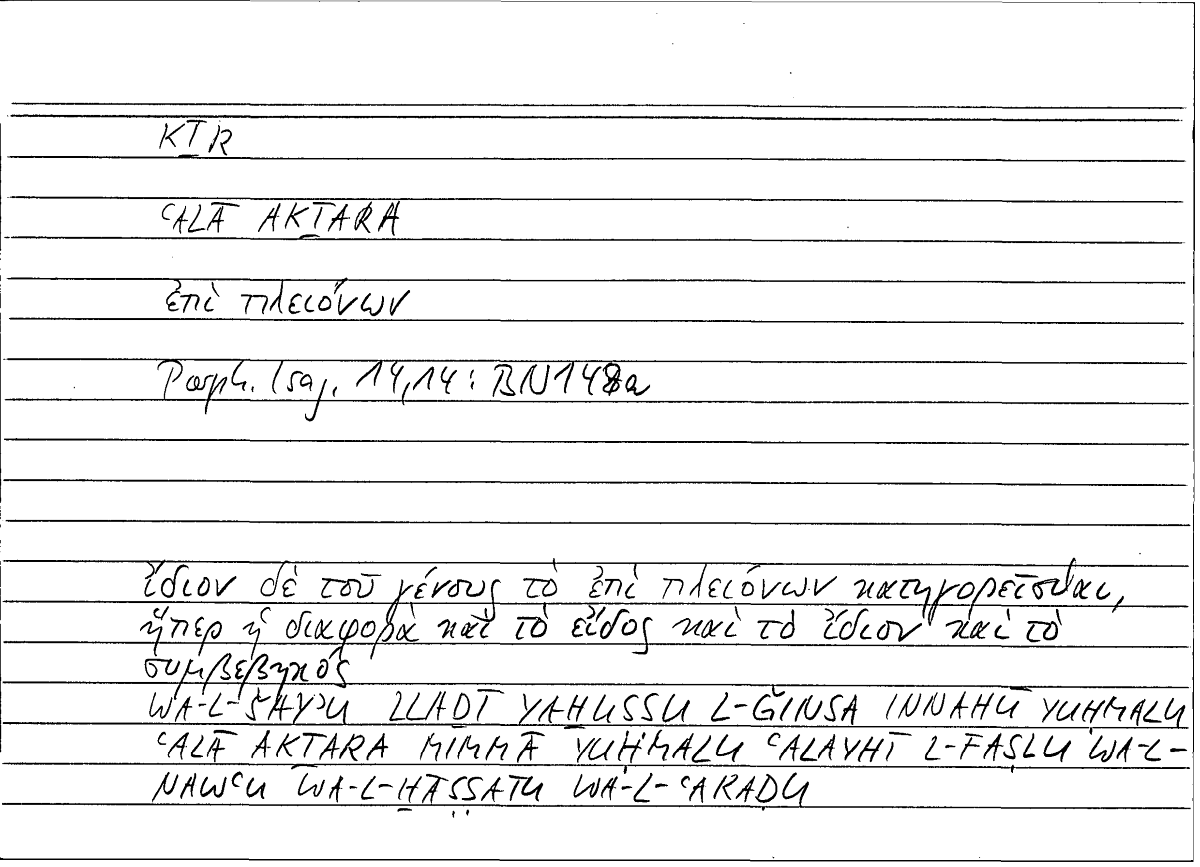 KṮR
ʿALĀ AKṮARA
ἐπὶ πλειόνων
Porph. Isag. 14,14: BN148a
ἴδιον δὲ τοῦ γένους τὸ ἐπὶ πλειόνων κατηγορεῖσθαι,
ἤπερ ἡ διαφορὰ καὶ τὸ εἶδος καὶ τὸ ἴδιον καὶ τὸ
συμβεβηκός
WA-L-ŠAYʾU LLAḎĪ YAḪUSSU L-ǦINSA INNAHŪ YUḤMALU
ʿALĀ AKTARA MIMMĀ YUḤMALU ʿALAYHĪ L-FAṢLU WA-L-
NAWʿU WA-L-ḪĀṢṢATU WA-L-ʿARAḌU